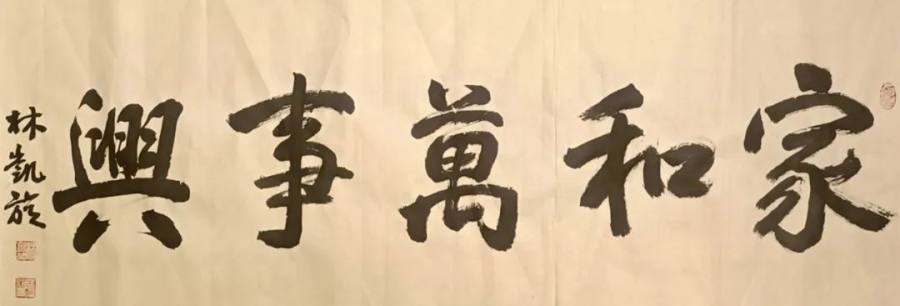 家和萬事興
林凱旋